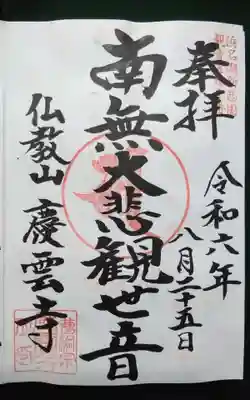 奉拝
令和六年
八月二十五日
南無大悲観世音
仏教山 慶雲寺